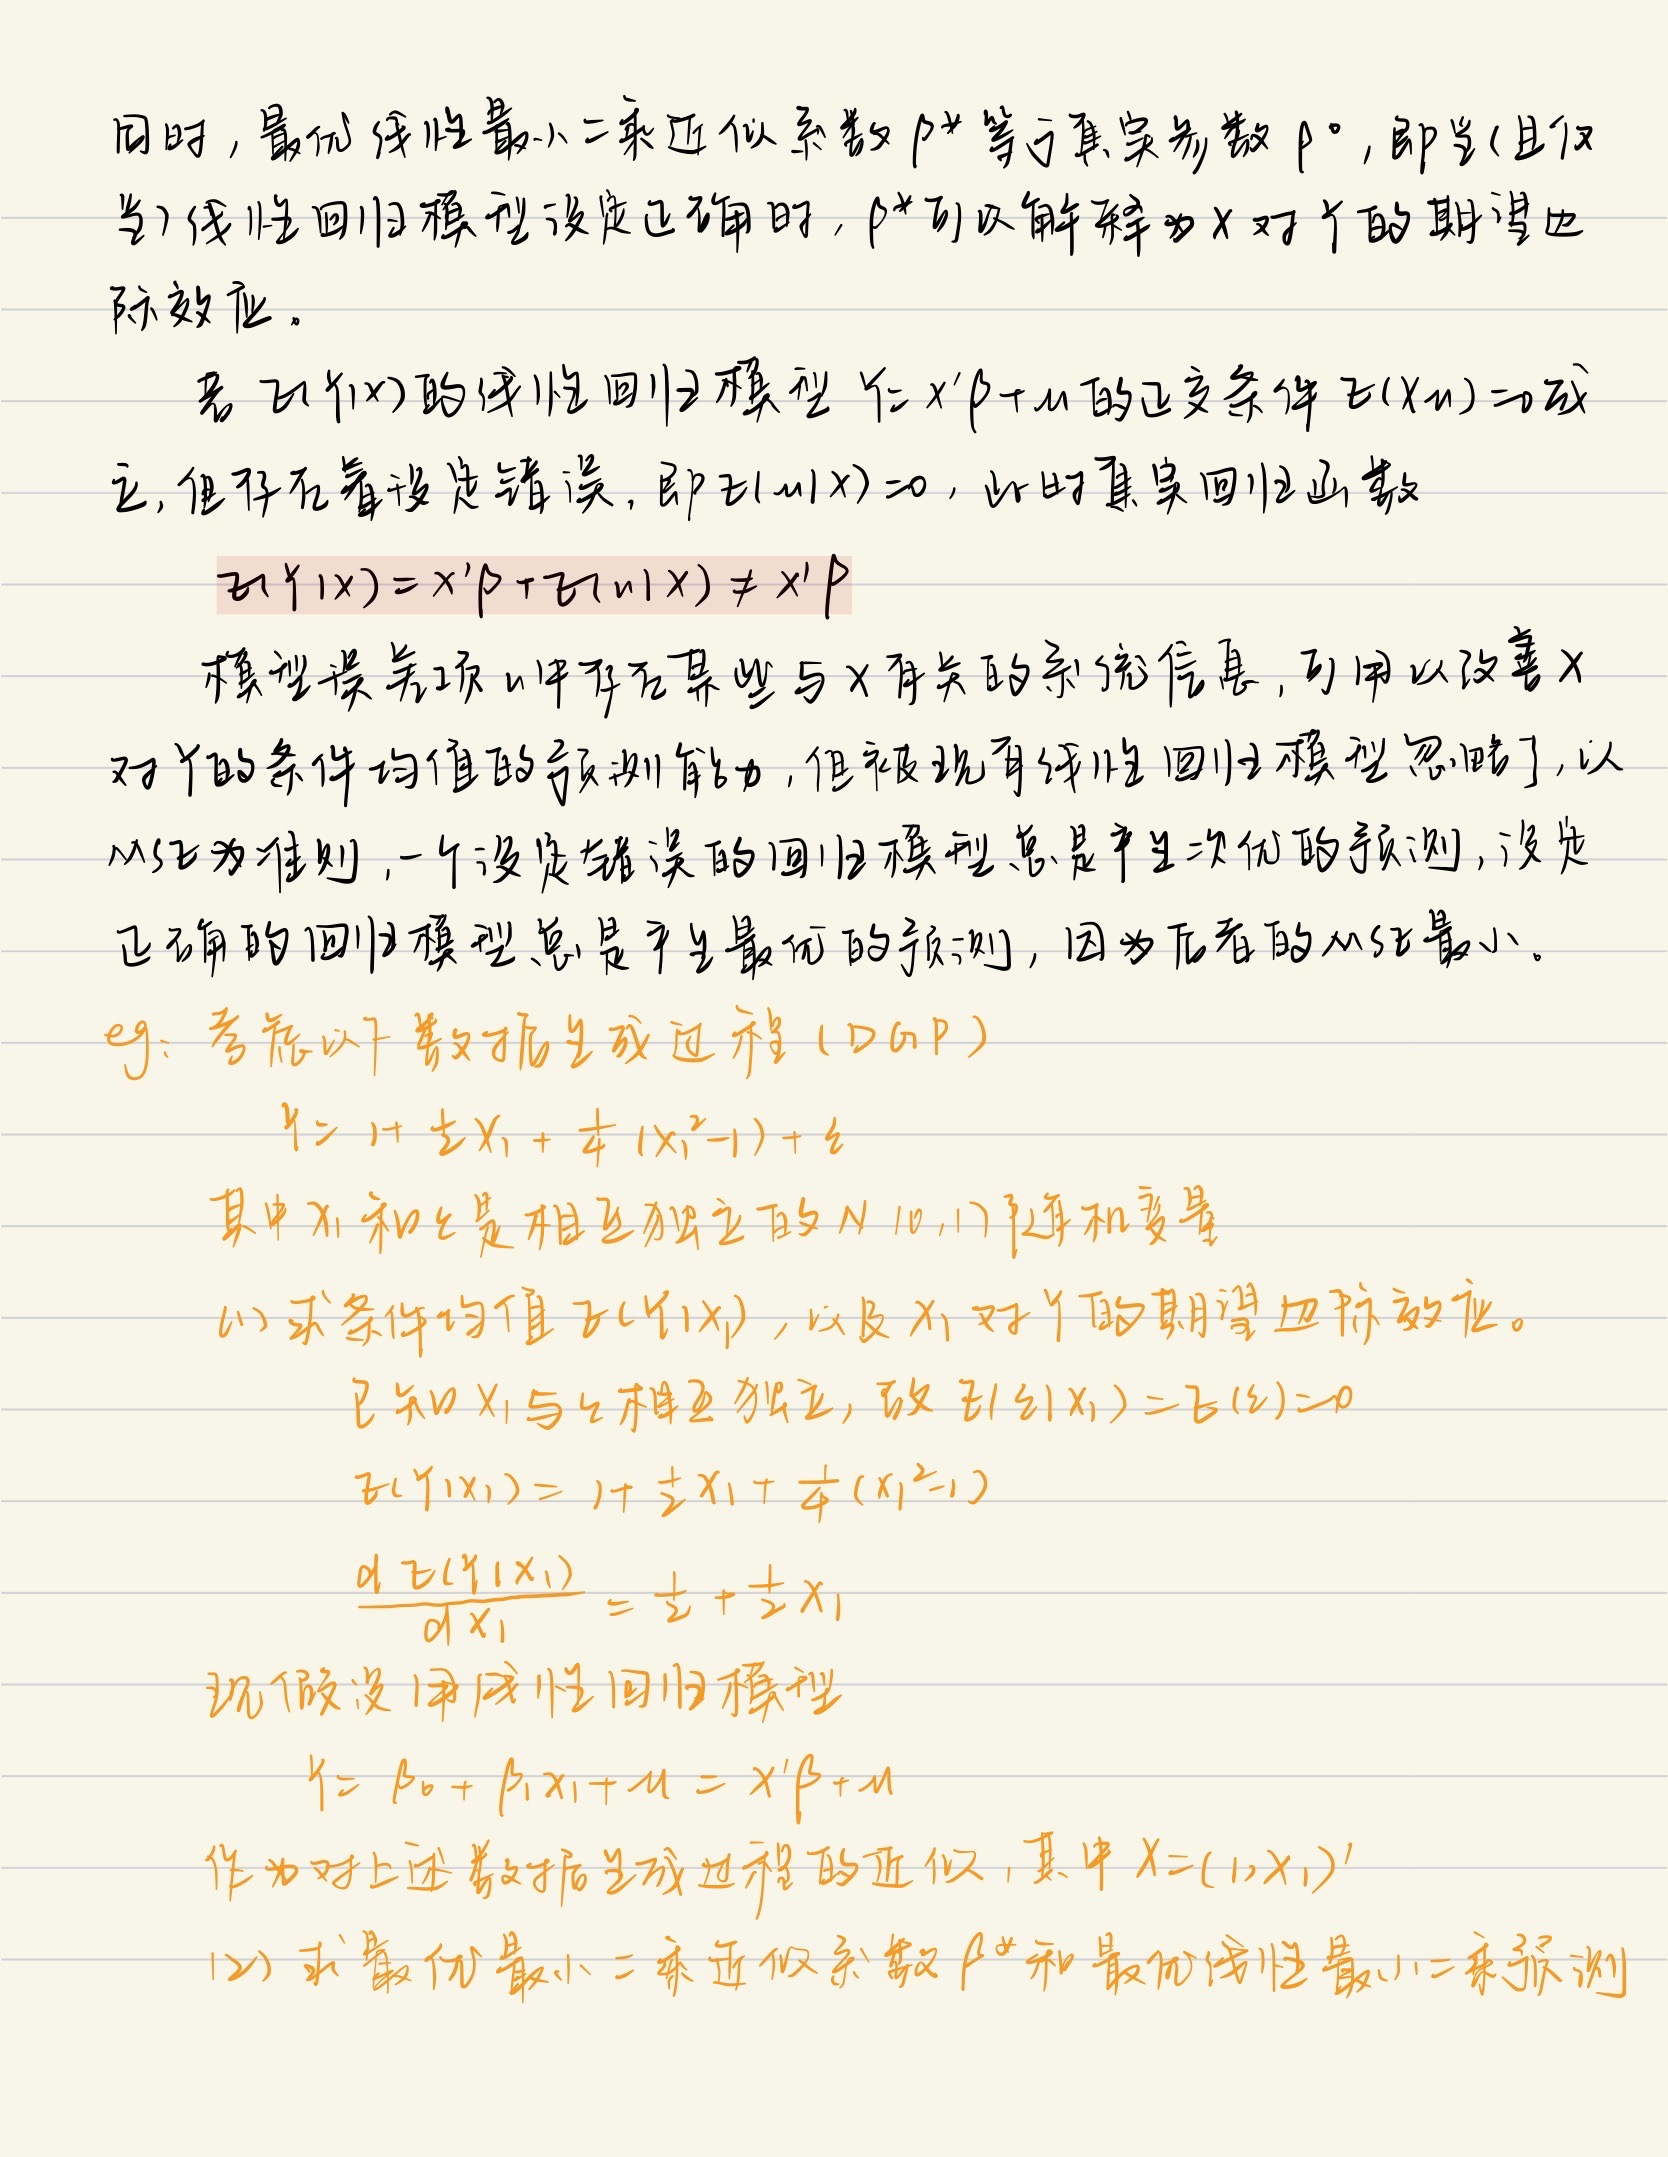 同时，最优线性最小二乘近似系数β*等于真实参数β°，即当(且仅
当)线性回归模型设定正确时，β*可以解释为X对Y的期望边
际效应。
若E(Y|X)的线性回归模型 Y=X'β+u的正交条件E(Xu)=0成
立，但存在着设定错误，即E(u|X)=0，此时真实回归函数
E(Y|X)=X'β+E(u|X)≠X'β
模型误差项u中存在某些与X有关的系统信息，可用以改善X
对Y的条件均值的预测能力，但被现有线性回归模型忽略了，以
MSE为准则，一个设定错误的回归模型总是产生次优的预测，设定
正确的回归模型总是产生最优的预测，因为后者的MSE最小。
eg：考虑以下数据生成过程(DGP)
Y=1+½X₁+¼(X₁²-1)+ε
其中X₁和ε是相互独立的N(0,1)随机变量
(1)求条件均值E(Y|X₁)，以及X₁对Y的期望边际效应。
已知X₁与ε相互独立，故E(ε|X₁)=E(ε)=0
E(Y|X₁)=1+½X₁+¼(X₁²-1)
dE(Y|X₁)/dX₁=½+½X₁
现假设用线性回归模型
Y=β₀+β₁X₁+u=X'β+u
作为对上述数据生成过程的近似，其中X=(1,X₁)'
(2)求最优最小二乘近似系数β*和最优线性最小二乘预测